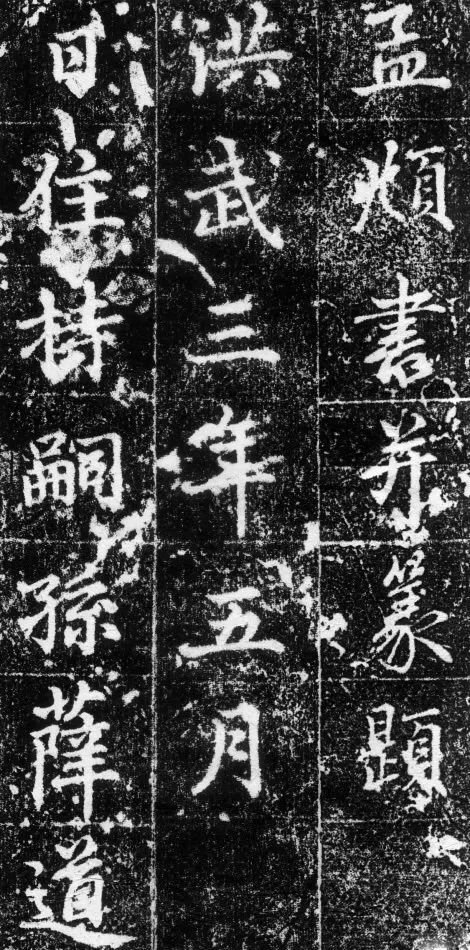 孟頫書并篆題
洪武三年五月
日住持嗣孫薛道